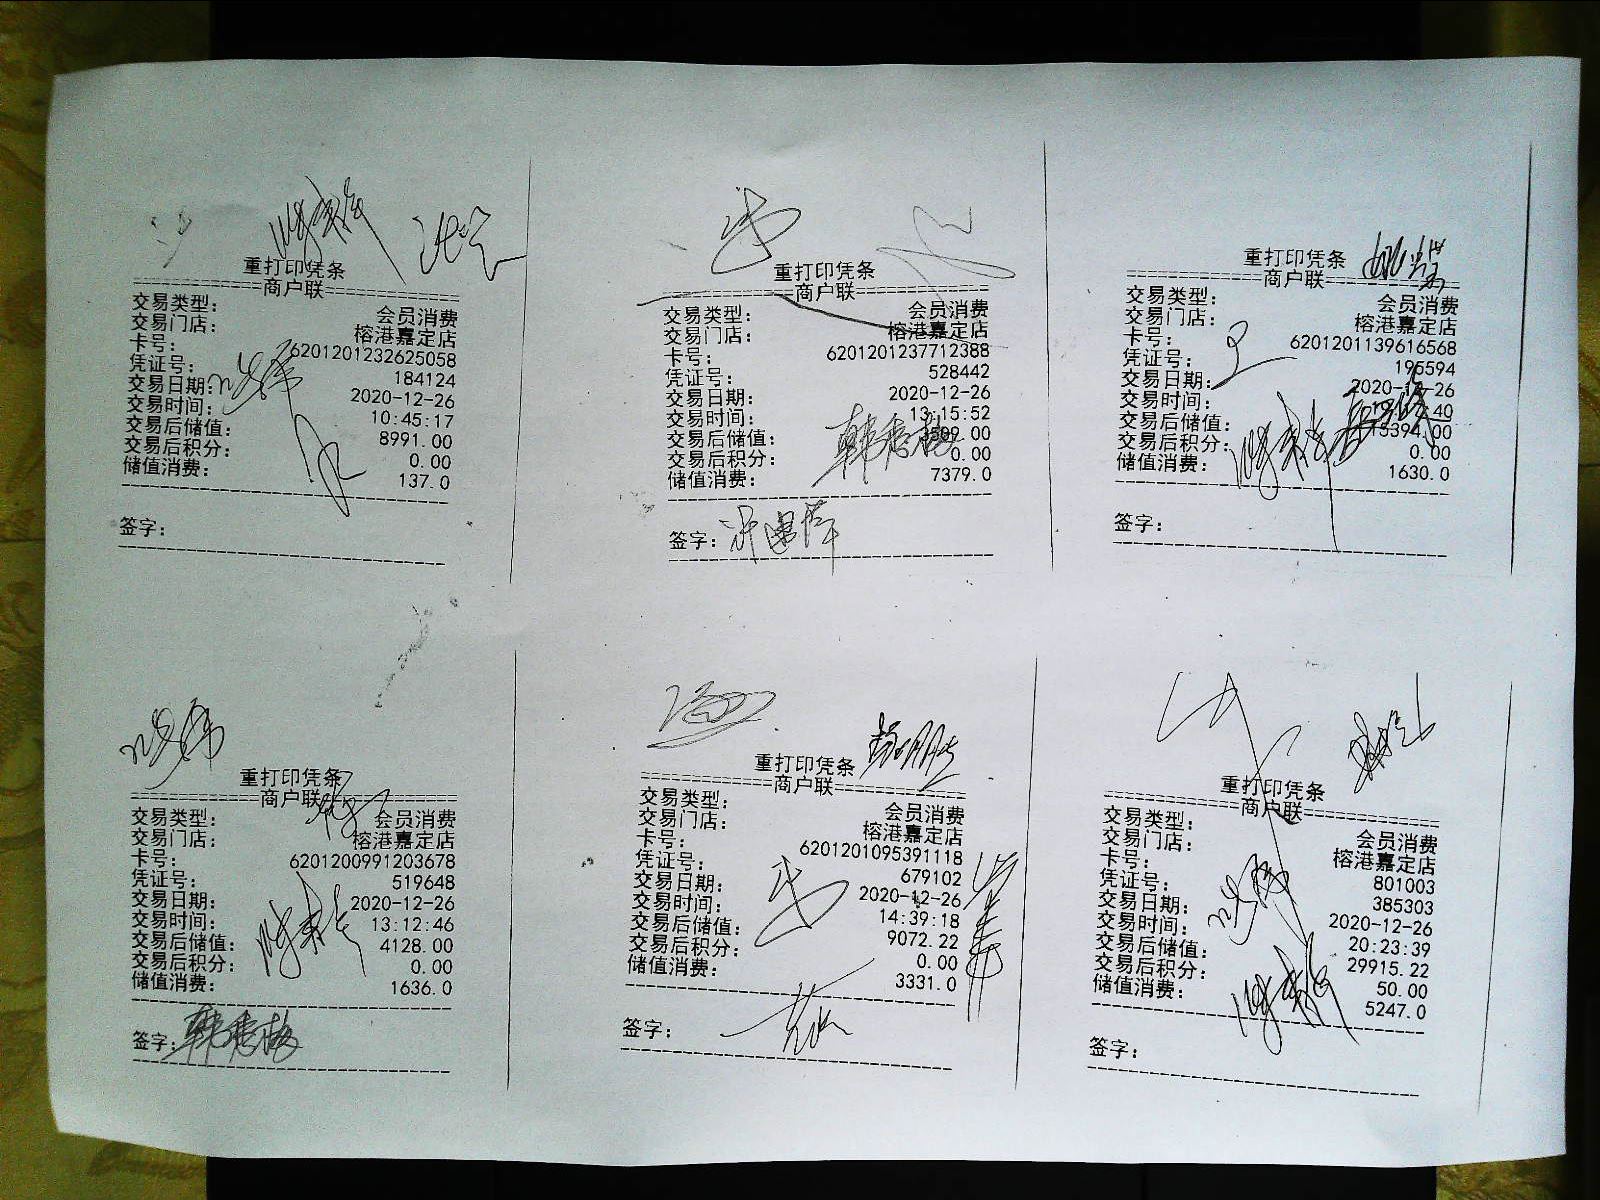 重打印凭条
商户联
交易类型: 会员消费
交易门店: 榕港嘉定店
卡号: 6201201232625058
凭证号: 184124
交易日期: 2020-12-26
交易时间: 10:45:17
交易后储值: 8991.00
交易后积分: 0.00
储值消费: 137.0
签字:
重打印凭条
商户联
交易类型: 会员消费
交易门店: 榕港嘉定店
卡号: 6201201237712388
凭证号: 528442
交易日期: 2020-12-26
交易时间: 13:15:52
交易后储值:
交易后积分: 0.00
储值消费: 7379.0
签字:
重打印凭条
商户联
交易类型: 会员消费
交易门店: 榕港嘉定店
卡号: 6201201139616568
凭证号: 195594
交易日期: 2020-12-26
交易时间:
交易后储值: 15394.00
交易后积分: 0.00
储值消费: 1630.0
签字:
重打印凭条
商户联
交易类型: 会员消费
交易门店: 榕港嘉定店
卡号: 6201200991203678
凭证号: 519648
交易日期: 2020-12-26
交易时间: 13:12:46
交易后储值: 4128.00
交易后积分: 0.00
储值消费: 1636.0
签字: 韩秀梅
重打印凭条
商户联
交易类型: 会员消费
交易门店: 榕港嘉定店
卡号: 6201201095391118
凭证号: 679102
交易日期: 2020-12-26
交易时间: 14:39:18
交易后储值: 9072.22
交易后积分: 0.00
储值消费: 3331.0
签字:
重打印凭条
商户联
交易类型: 会员消费
交易门店: 榕港嘉定店
卡号: 801003
凭证号: 385303
交易日期: 2020-12-26
交易时间: 20:23:39
交易后储值: 29915.22
交易后积分: 50.00
储值消费: 5247.0
签字: